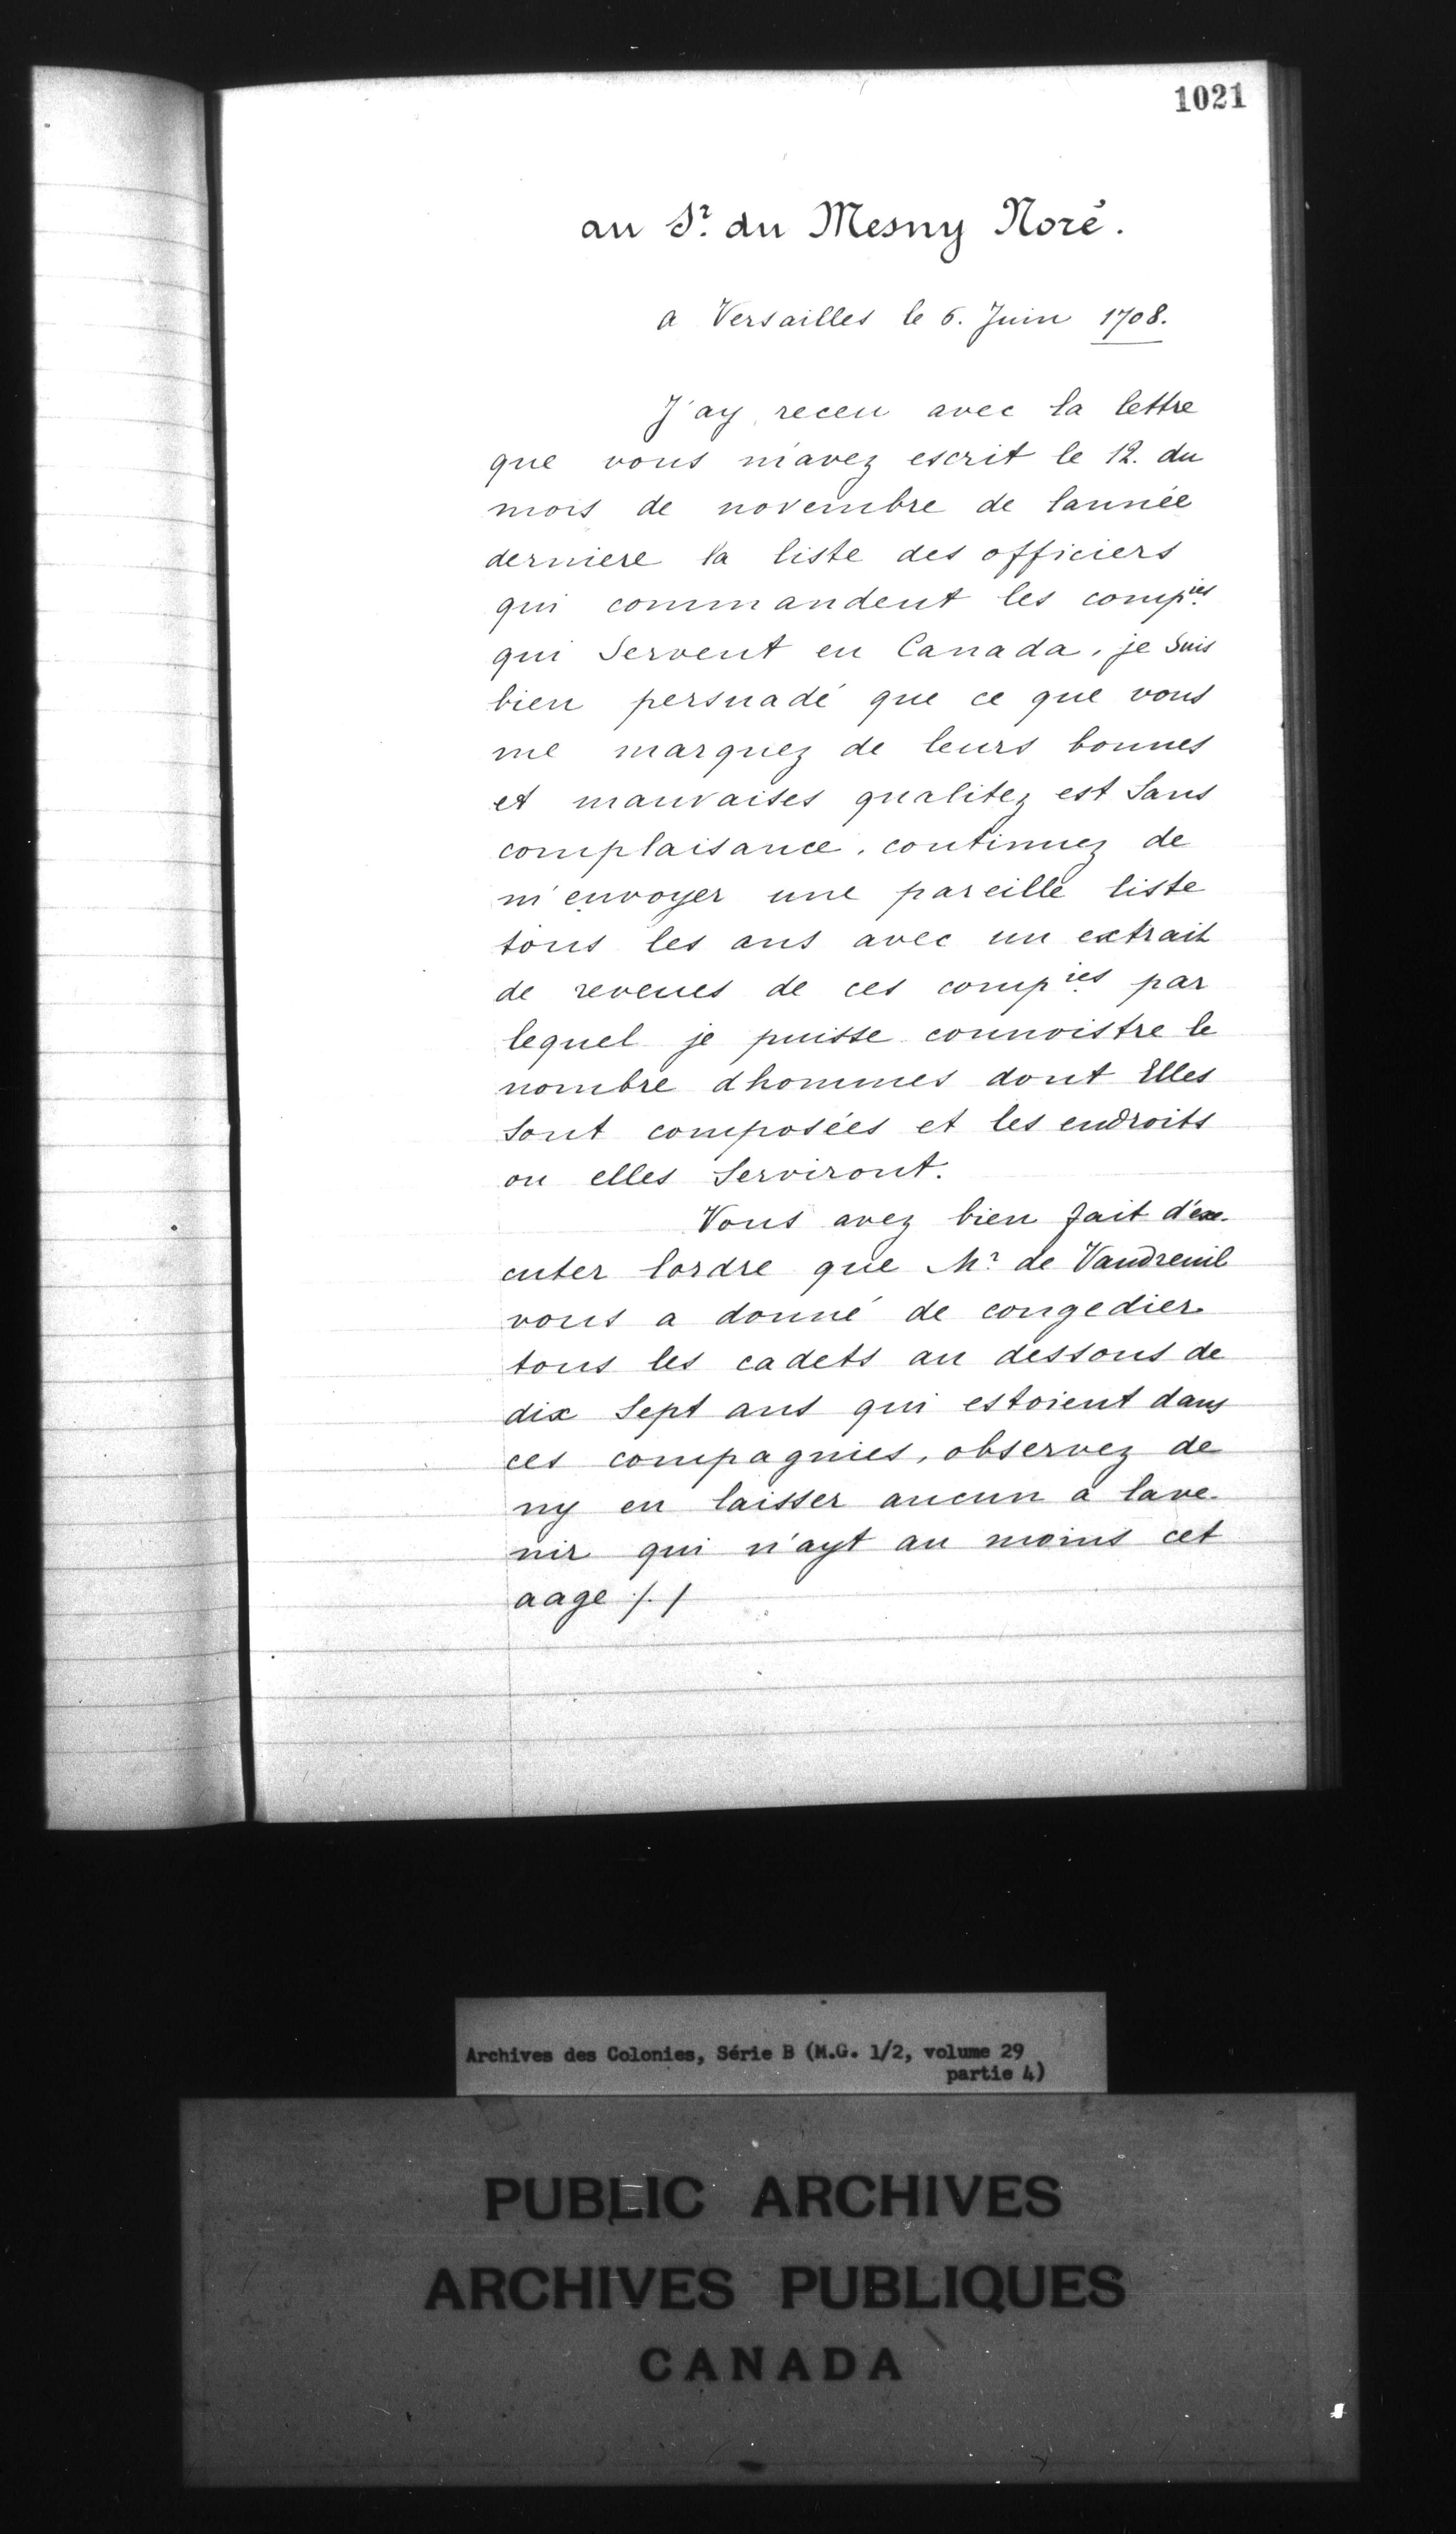 1021
au Sr. du Mesny Noré.
a Versailles le 6. Juin 1708.
J'ay receu avec la lettre
que vous m'avez escrit le 12. du
mois de novembre de lannée
derniere la liste des officiers
qui commandent les compies
qui Servent en Canada, je Suis
bien persuadé que ce que vous
me marquez de leurs bonnes
et mauvaises qualitez est Sans
complaisance. continuez de
m'envoyer une pareille liste
tous les ans avec un extrait
de reveues de ces compies par
lequel je puisse connoistre le
nombre dhommes dont Elles
Sont composées et les endroits
ou elles Serviront.
Vous avez bien fait d'exe-
cuter lordre que Mr. de Vaudreuil
vous a donné de congedier
tous les cadets au dessous de
dix Sept ans qui estoient dans
ces compagnies, observez de
ny en laisser aucun a lave-
nir qui n'ayt au moins cet
aage /. /
Archives des Colonies, Série B (M.G. 1/2, volume 29
partie 4)
PUBLIC ARCHIVES
ARCHIVES PUBLIQUES
CANADA